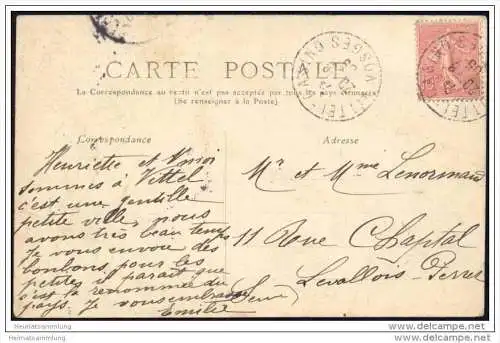 CARTE POSTALE
La Correspondance au recto n'est pas acceptée par tous les pays étrangers
(Se renseigner à la Poste)
Correspondance
Adresse
Henriette et moi
sommes à Vittel
c'est une gentille
petite ville, nous
avons très beau temps
Je vous envoie des
bonbons pour les
petites il parait que
c'est la renommée du
pays. Je vous embrasse
Emilie
Mr et Mme Lenormand
11 Rue Chaptal
Levallois-Perret
Seine
VITTEL
VOSGES
Heimatsammlung
Heimatsammlung.com